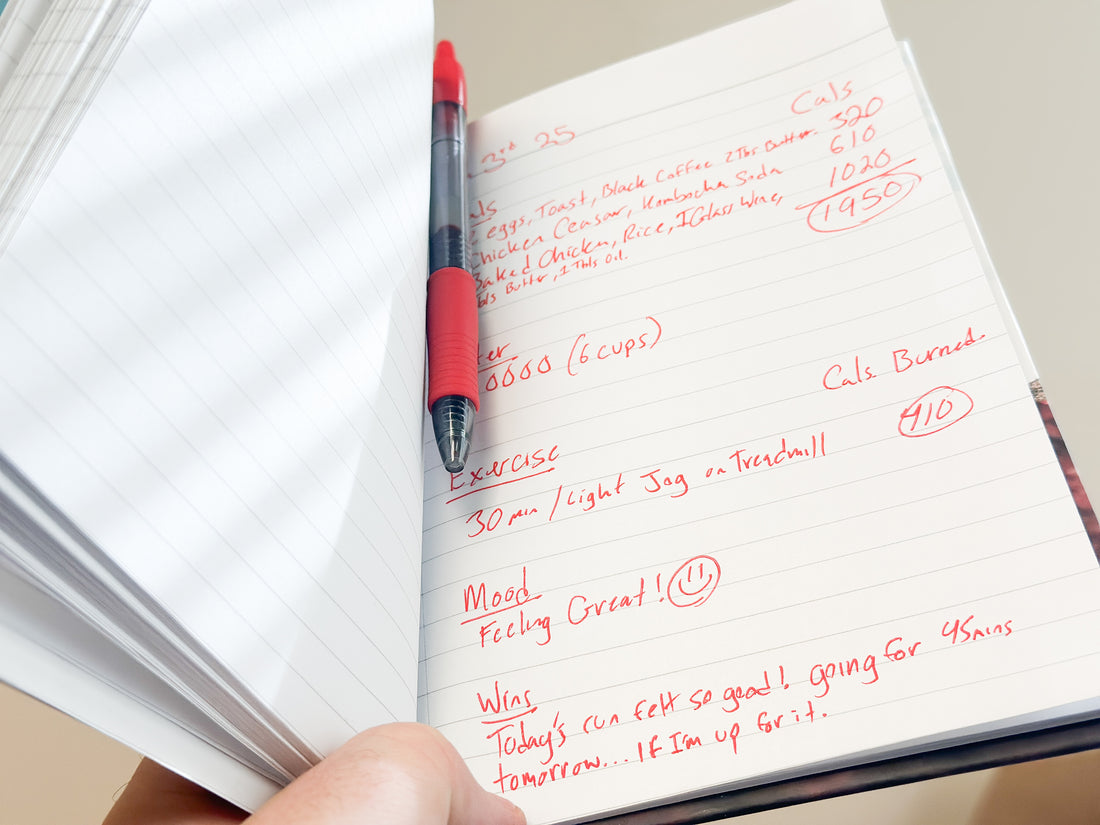 3rd 25
Cals
eggs, Toast, Black Coffee 2 Tbs Butter. 320
Chicken Ceasar, Kombocha Soda 610
Baked Chicken, Rice, 1 Glass Wine, 1020
Butter, 1 Tbls Oil. 1950
(6 cups)
Cals. Burned.
Exercise
410
30 min / Light Jog on Treadmill
Mood
Feeling Great!
Wins
Today's run felt so good! going for 45mins
tomorrow... If I'm up for it.